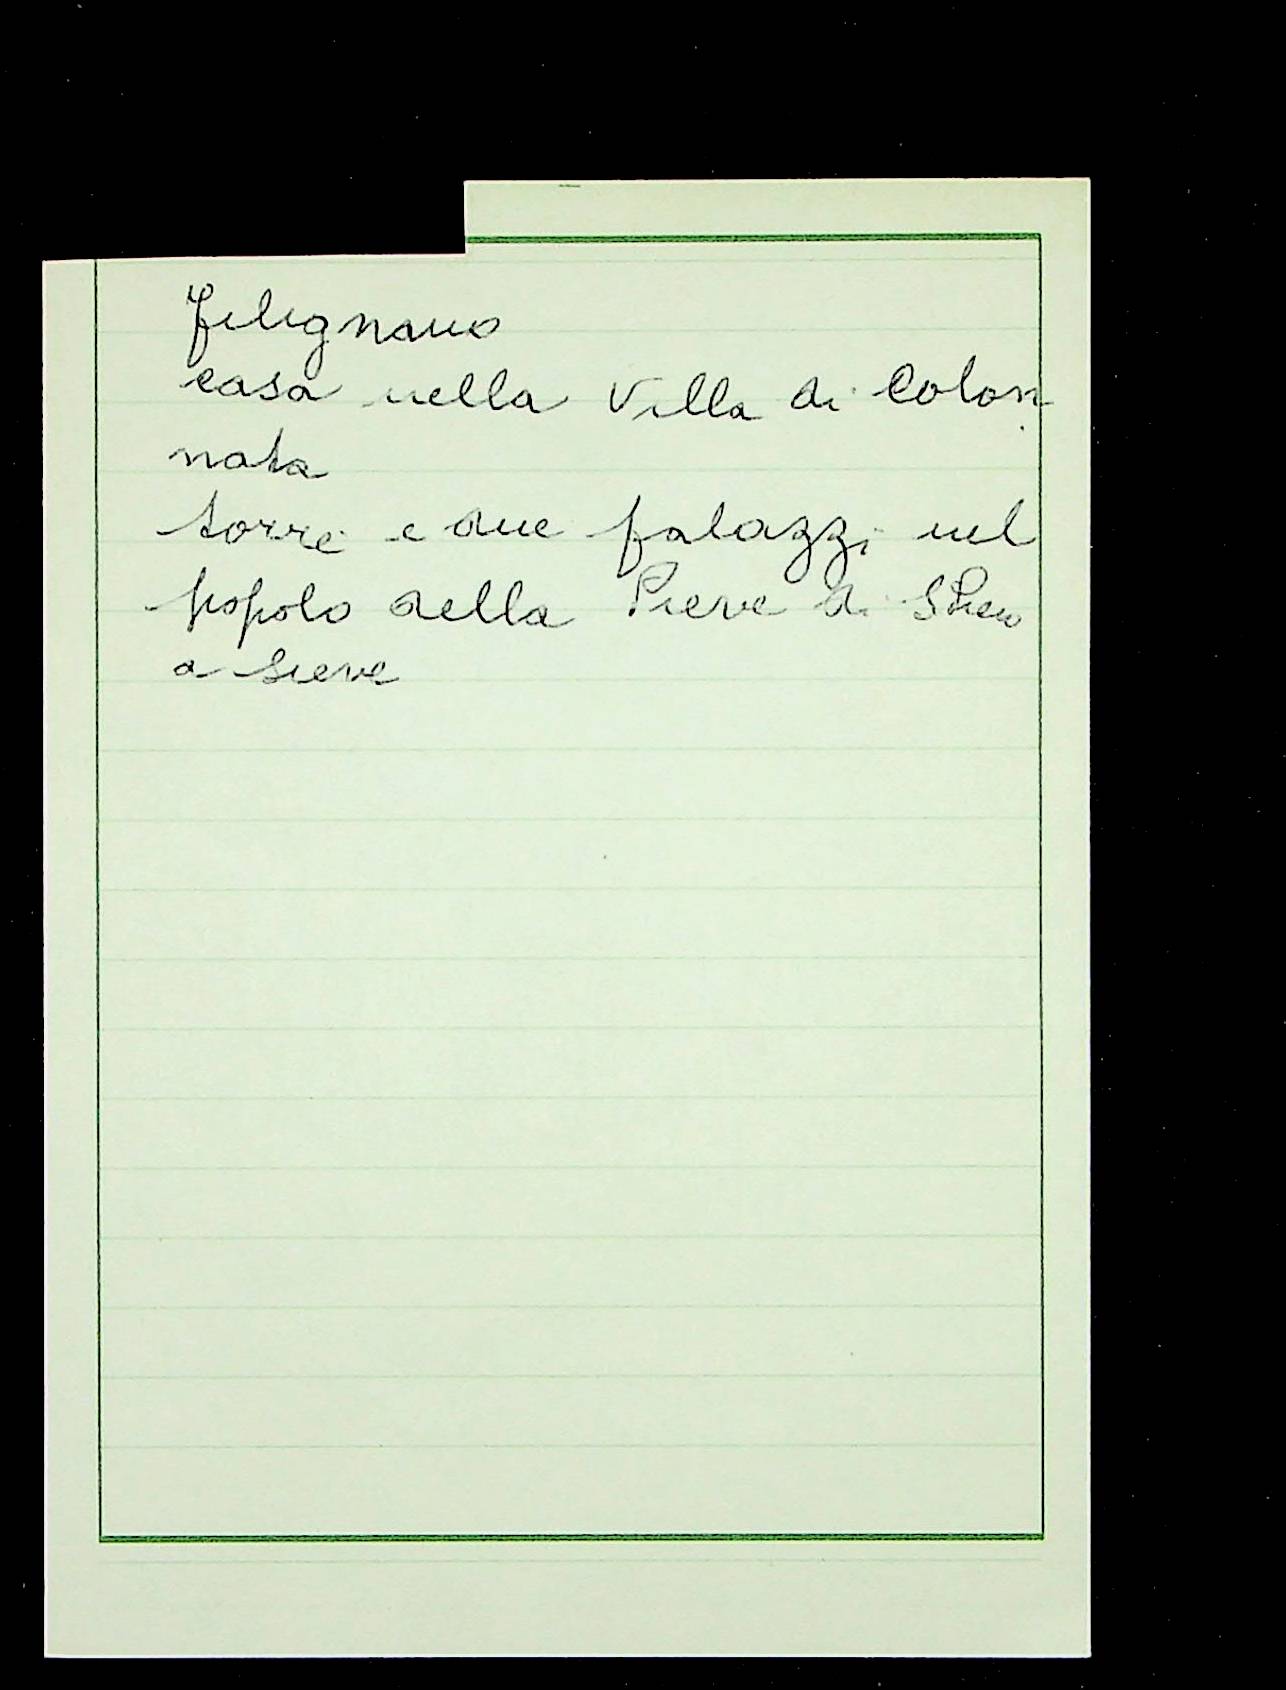 Filignano
casa nella Villa di Colon
nata
torre e due palazzi nel
popolo della Pieve di S Piero
a Sieve